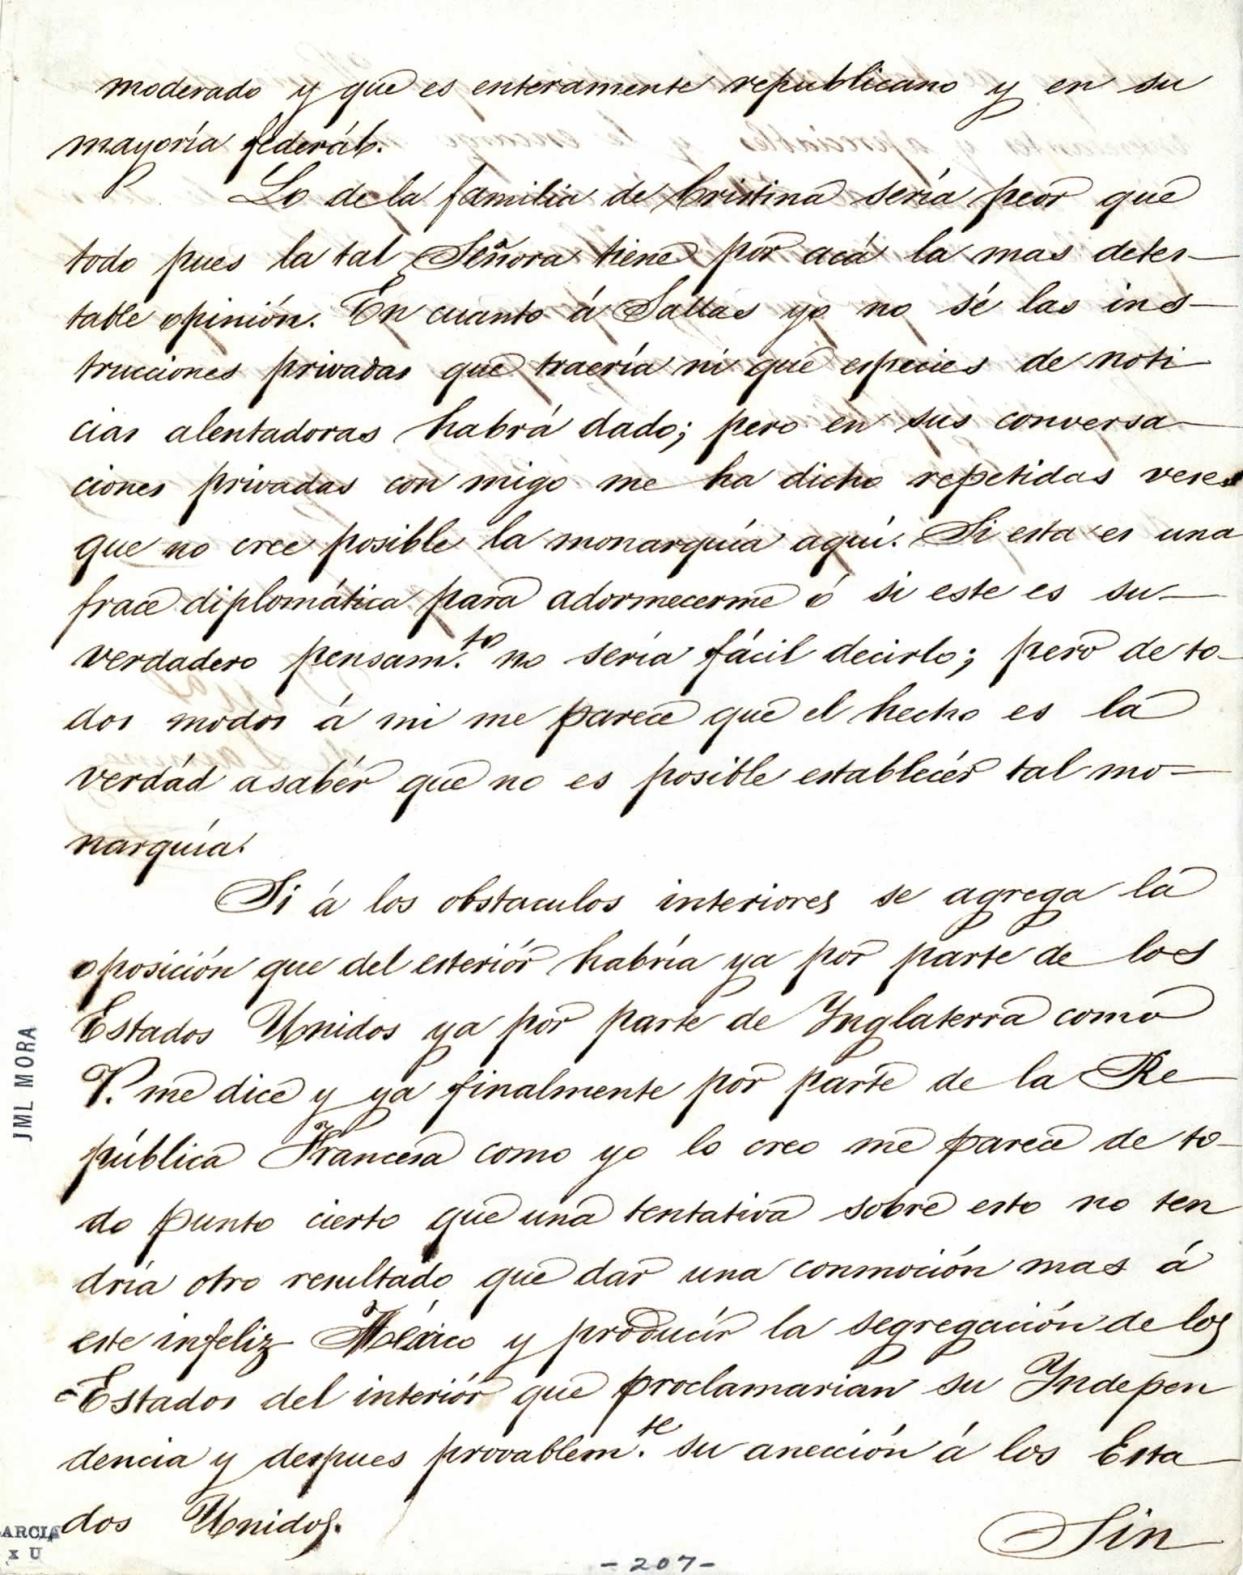 moderado y que es enteramente republicano y en su
mayoría federál.
Lo de la familia de Cristina sería peor que
todo pues la tal Señora tiene por acá la mas detes-
table opinión. En cuanto á Sallas yo no sé las ins-
trucciones privadas que traería ni que especies de noti
cias alentadoras habrá dado; pero en sus conversa-
ciones privadas con migo me ha dicho repetidas veses
que no cree posible la monarquía aquí. Si esta es una
frace diplomática para adormecerme ó si este es su
verdadero pensam.to no sería fácil decirlo; pero de to-
dos modos á mi me parece que el hecho es la
verdád asabér que no es posible establecér tal mo-
narquía.
Si á los obstaculos interiores se agrega la
oposición que del esteriór habría ya por parte de los
Estados Unidos ya por parte de Ynglaterra como
V. me dice y ya finalmente por parte de la Re
pública Francesa como yo lo creo me parece de to-
do punto cierto que una tentativa sobre esto no ten
dría otro resultado que dar una conmoción mas á
este infeliz México y producír la segregación de los
Estados del interiór que proclamarian su Yndepen
dencia y despues provablem.te su anección á los Esta
dos Unidos.
Sin
-207-
JML MORA
GARCIA
x U